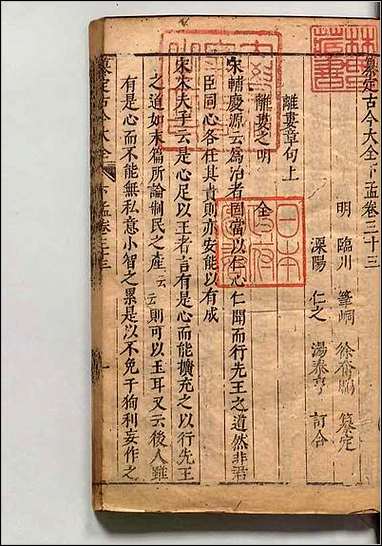 纂定古今大全下孟卷三十三
明 臨川 筆峒 徐奮鵬 纂定
溧陽 仁之 湯泰亨 訂合
離婁章句上
離婁之明 全
宋輔慶源云為治者固當以仁心仁聞而行先王之道然非君
臣同心各任其責則亦安能以有成
宋朱夫子云是心足以王者言有是心而能擴充之以行先王
之道如末篇所論制民之產云云則可以王耳又云後人雖
有是心而不能無私意小智之累是以不免于狥利妄作之
纂定古今大全 下孟卷三十三 一
林
藏書
日本
政府
圖書